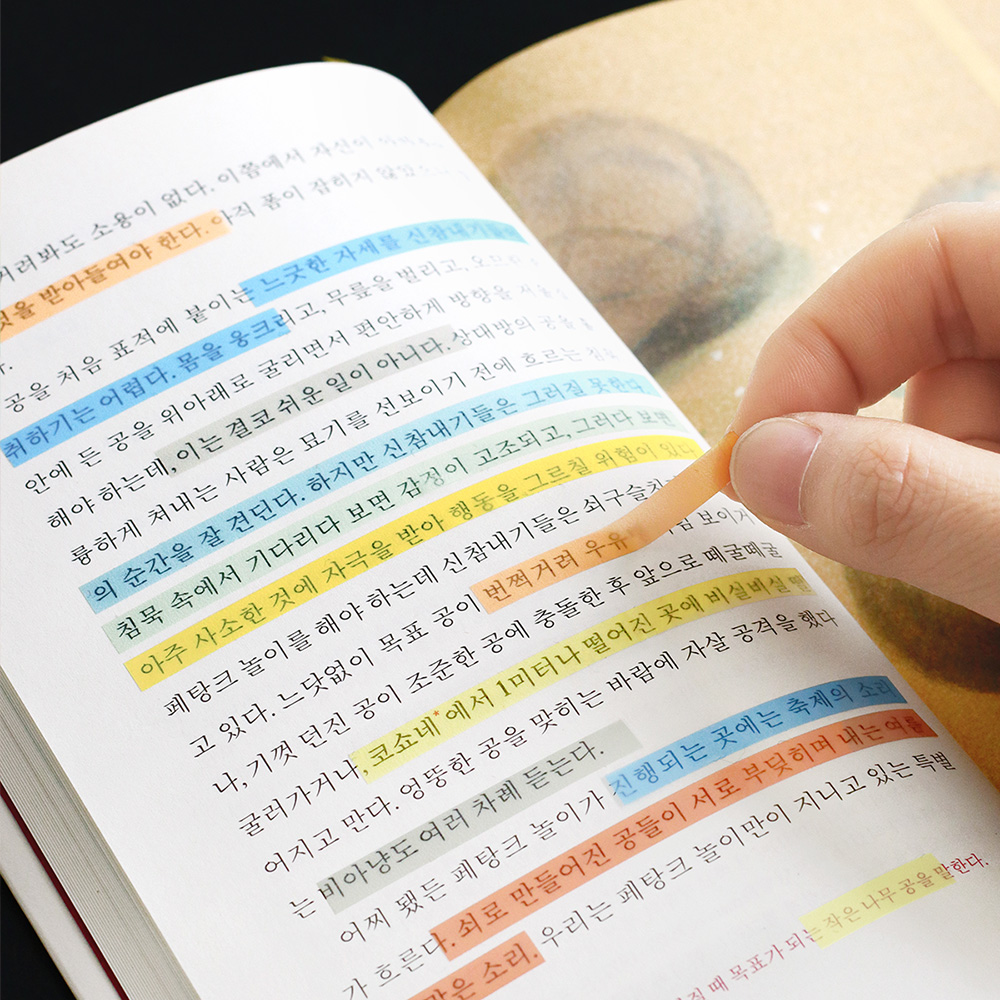 거려봐도 소용이 없다. 이쯤에서 자신이
것을 받아들여야 한다. 아직 폼이 잡히지 않았
공을 처음 표적에 붙이는 느긋한 자세를 신참내기들이
취하기는 어렵다. 몸을 웅크리고, 무릎을 벌리고, 오므린
안에 든 공을 위아래로 굴리면서 편안하게 방향을
해야 하는데, 이는 결코 쉬운 일이 아니다. 상대방의 공을
륭하게 쳐내는 사람은 묘기를 선보이기 전에 흐르는 침묵
의 순간을 잘 견딘다. 하지만 신참내기들은 그러질 못한다.
침묵 속에서 기다리다 보면 감정이 고조되고, 그러다 보면
아주 사소한 것에 자극을 받아 행동을 그르칠 위험이 있다.
페탕크 놀이를 해야 하는데 신참내기들은 쇠구슬치
고 있다. 느닷없이 목표 공이 번쩍거려 우유 보이거
나, 기껏 던진 공이 조준한 공에 충돌한 후 앞으로 떼굴떼굴
굴러가거나, 코쇼네*에서 1미터나 떨어진 곳에 비실비실 떨
어지고 만다. 엉뚱한 공을 맞히는 바람에 자살 공격을 했다
는 비아냥도 여러 차례 듣는다.
어찌 됐든 페탕크 놀이가 진행되는 곳에는 축제의 소리
가 흐른다. 쇠로 만들어진 공들이 서로 부딪히며 내는 여름
같은 소리. 우리는 페탕크 놀이만이 지니고 있는 특별
질 때 목표가 되는 작은 나무 공을 말한다.